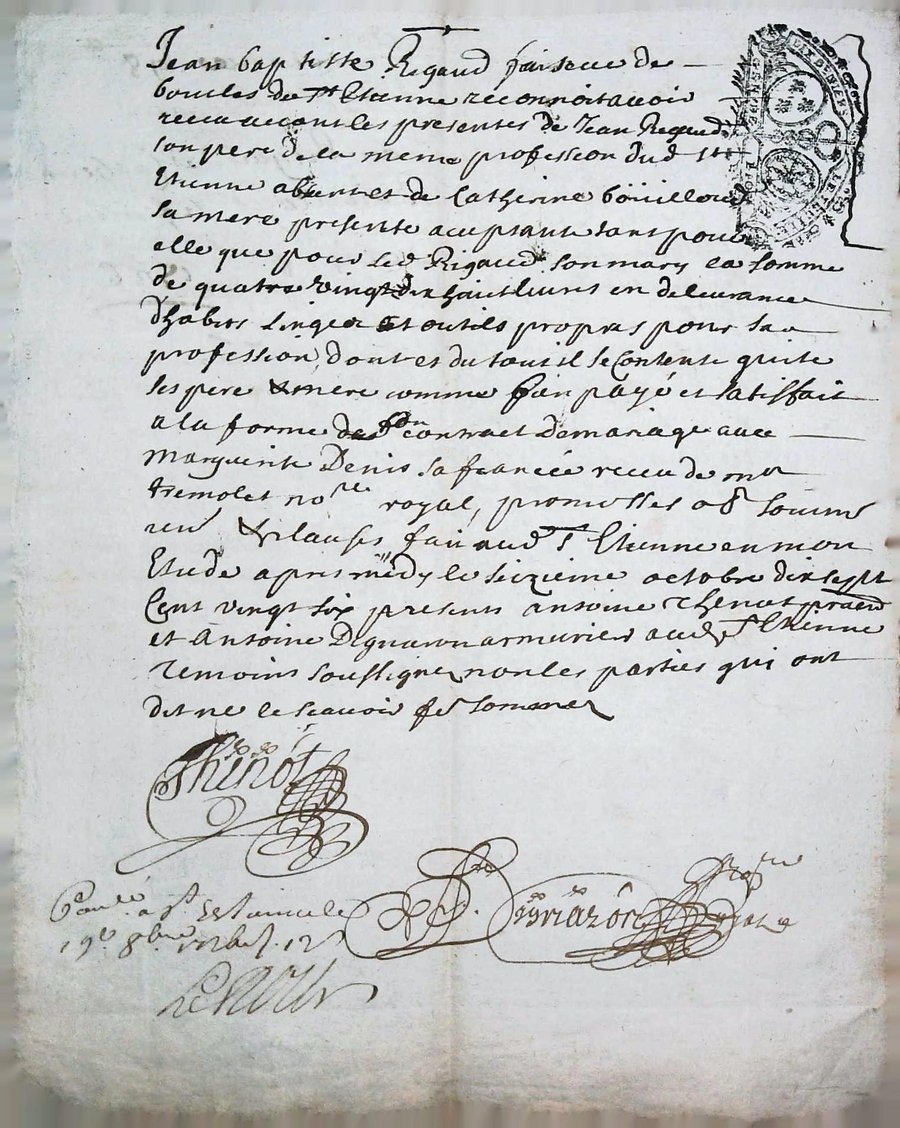 Jean baptiste Rigaud faiseur de
boucles de st Etienne reconnoit avoir
receu avant les presentes de Jean Rigaud
son pere de la meme profession dud st
Etienne absent et de Catherine
sa mere presente aceptante tant pour
elle que pour led Rigaud son mary la somme
de quatre vingt dix huit livres en delivrance
dhabits linges et outils propres pour sa
profession, dont et du tout il se contente quite
ses pere & mere comme bien payé et satisfait
a la forme de son contract de mariage avec
Marguerite Denis sa fiancée receu de mr
tremolet nore royal, promesses obl soumis
ren & clauses fait aud st Etienne en mon
Etude apres midy le seizieme octobre dix sept
Cent vingt six presents antoine thenot
et Antoine armurier aud st Etienne
temoins soussignez non les parties qui ont
dit ne le scavoir de sommez
Thinot
a st Estienne le
19e 8bre